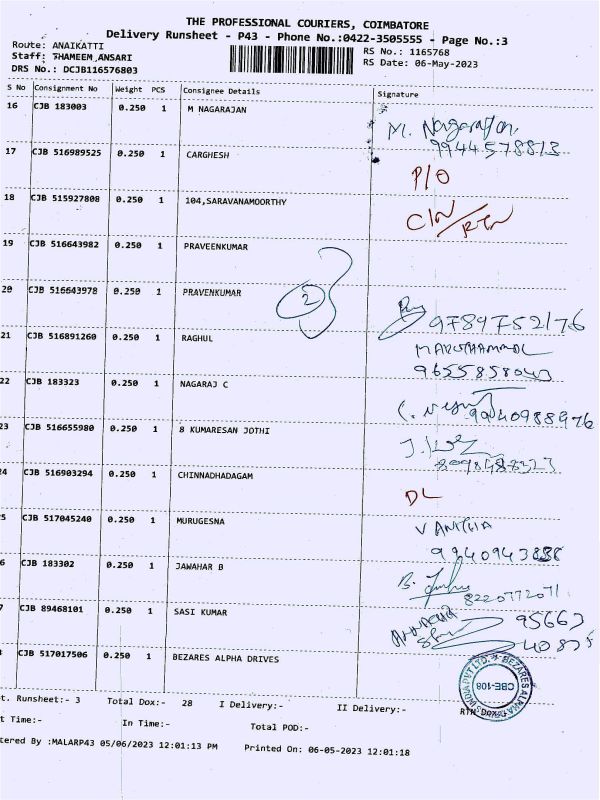 THE PROFESSIONAL COURIERS, COIMBATORE
Delivery Runsheet - P43 - Phone No.:0422-3505555 - Page No.:3
Route: ANAIKATTI
RS No.: 1165768
Staff: THAMEEM,ANSARI
RS Date: 06-May-2023
DRS No.: DCJB116576803
S No Consignment No Weight PCS Consignee Details Signature
16 CJB 183003 0.250 1 M NAGARAJAN M. Nagarajan
9944578813
17 CJB 516989525 0.250 1 CARGHESH P/O
18 CJB 515927808 0.250 1 104,SARAVANAMOORTHY
19 CJB 516643982 0.250 1 PRAVEENKUMAR
20 CJB 516643978 0.250 1 PRAVENKUMAR 2 9789752176
21 CJB 516891260 0.250 1 RAGHUL
9655858043
22 CJB 183323 0.250 1 NAGARAJ C 9940988976
23 CJB 516655980 0.250 1 8 KUMARESAN JOTHI
24 CJB 516903294 0.250 1 CHINNADHADAGAM DL
5 CJB 517045240 0.250 1 MURUGESNA VANITHA
6 CJB 183302 0.250 1 JAWAHAR B 8220772071
7 CJB 89468101 0.250 1 SASI KUMAR 95663
40875
CJB 517017506 0.250 1 BEZARES ALPHA DRIVES
BEZARES ALPHA INDIA PVT LTD.
CBE-108
t. Runsheet:- 3 Total Dox:- 28 I Delivery:- II Delivery:- RTN Dox:-
t Time:- In Time:- Total POD:-
tered By :MALARP43 05/06/2023 12:01:13 PM Printed On: 06-05-2023 12:01:18